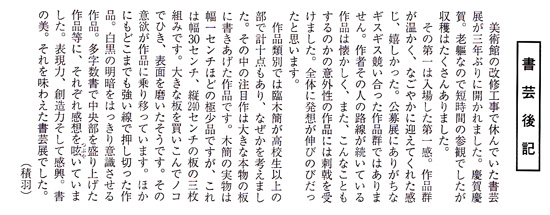 書芸後記
美術館の改修工事で休んでいた書芸
展が三年ぶりに開かれました。慶賀慶
賀。老軀なので短時間の参観でしたが
収穫はたくさんありました。
その第一は入場した第一感。作品群
が温かく、なごやかに迎えてくれた感
じ、嬉しかった。公募展にありがちな
ギスギス競い合った作品群ではありま
せん。作者その人の路線が続いている
作品は懐かしく、また、こんなことも
するのかの意外性の作品には刺戟を受
けました。全体に発想が伸びのびだっ
たと思います。
作品類別では臨木簡が高校生以上の
部で計十点もあり、なぜかを考えまし
た。その中の注目作は大きな本物の板
に書きあげた作品です。木簡の実物は
幅一センチほどの極少品ですが、これ
は幅30センチ、縦240センチの板の三枚
組みです。大きな板を買いこんでノコ
でひき、表面を磨いたそうです。その
意欲が作品に乗り移っています。ほか
にもどこまでも強い線で押し切った作
品。白黒の明暗をはっきり意識させる
作品。多字数書で中央部を盛り上げた
作品等に、それぞれ感想を呟いていま
した。表現力、創造力そして感興。書
の美。それを味わえた書芸展でした。
(積羽)